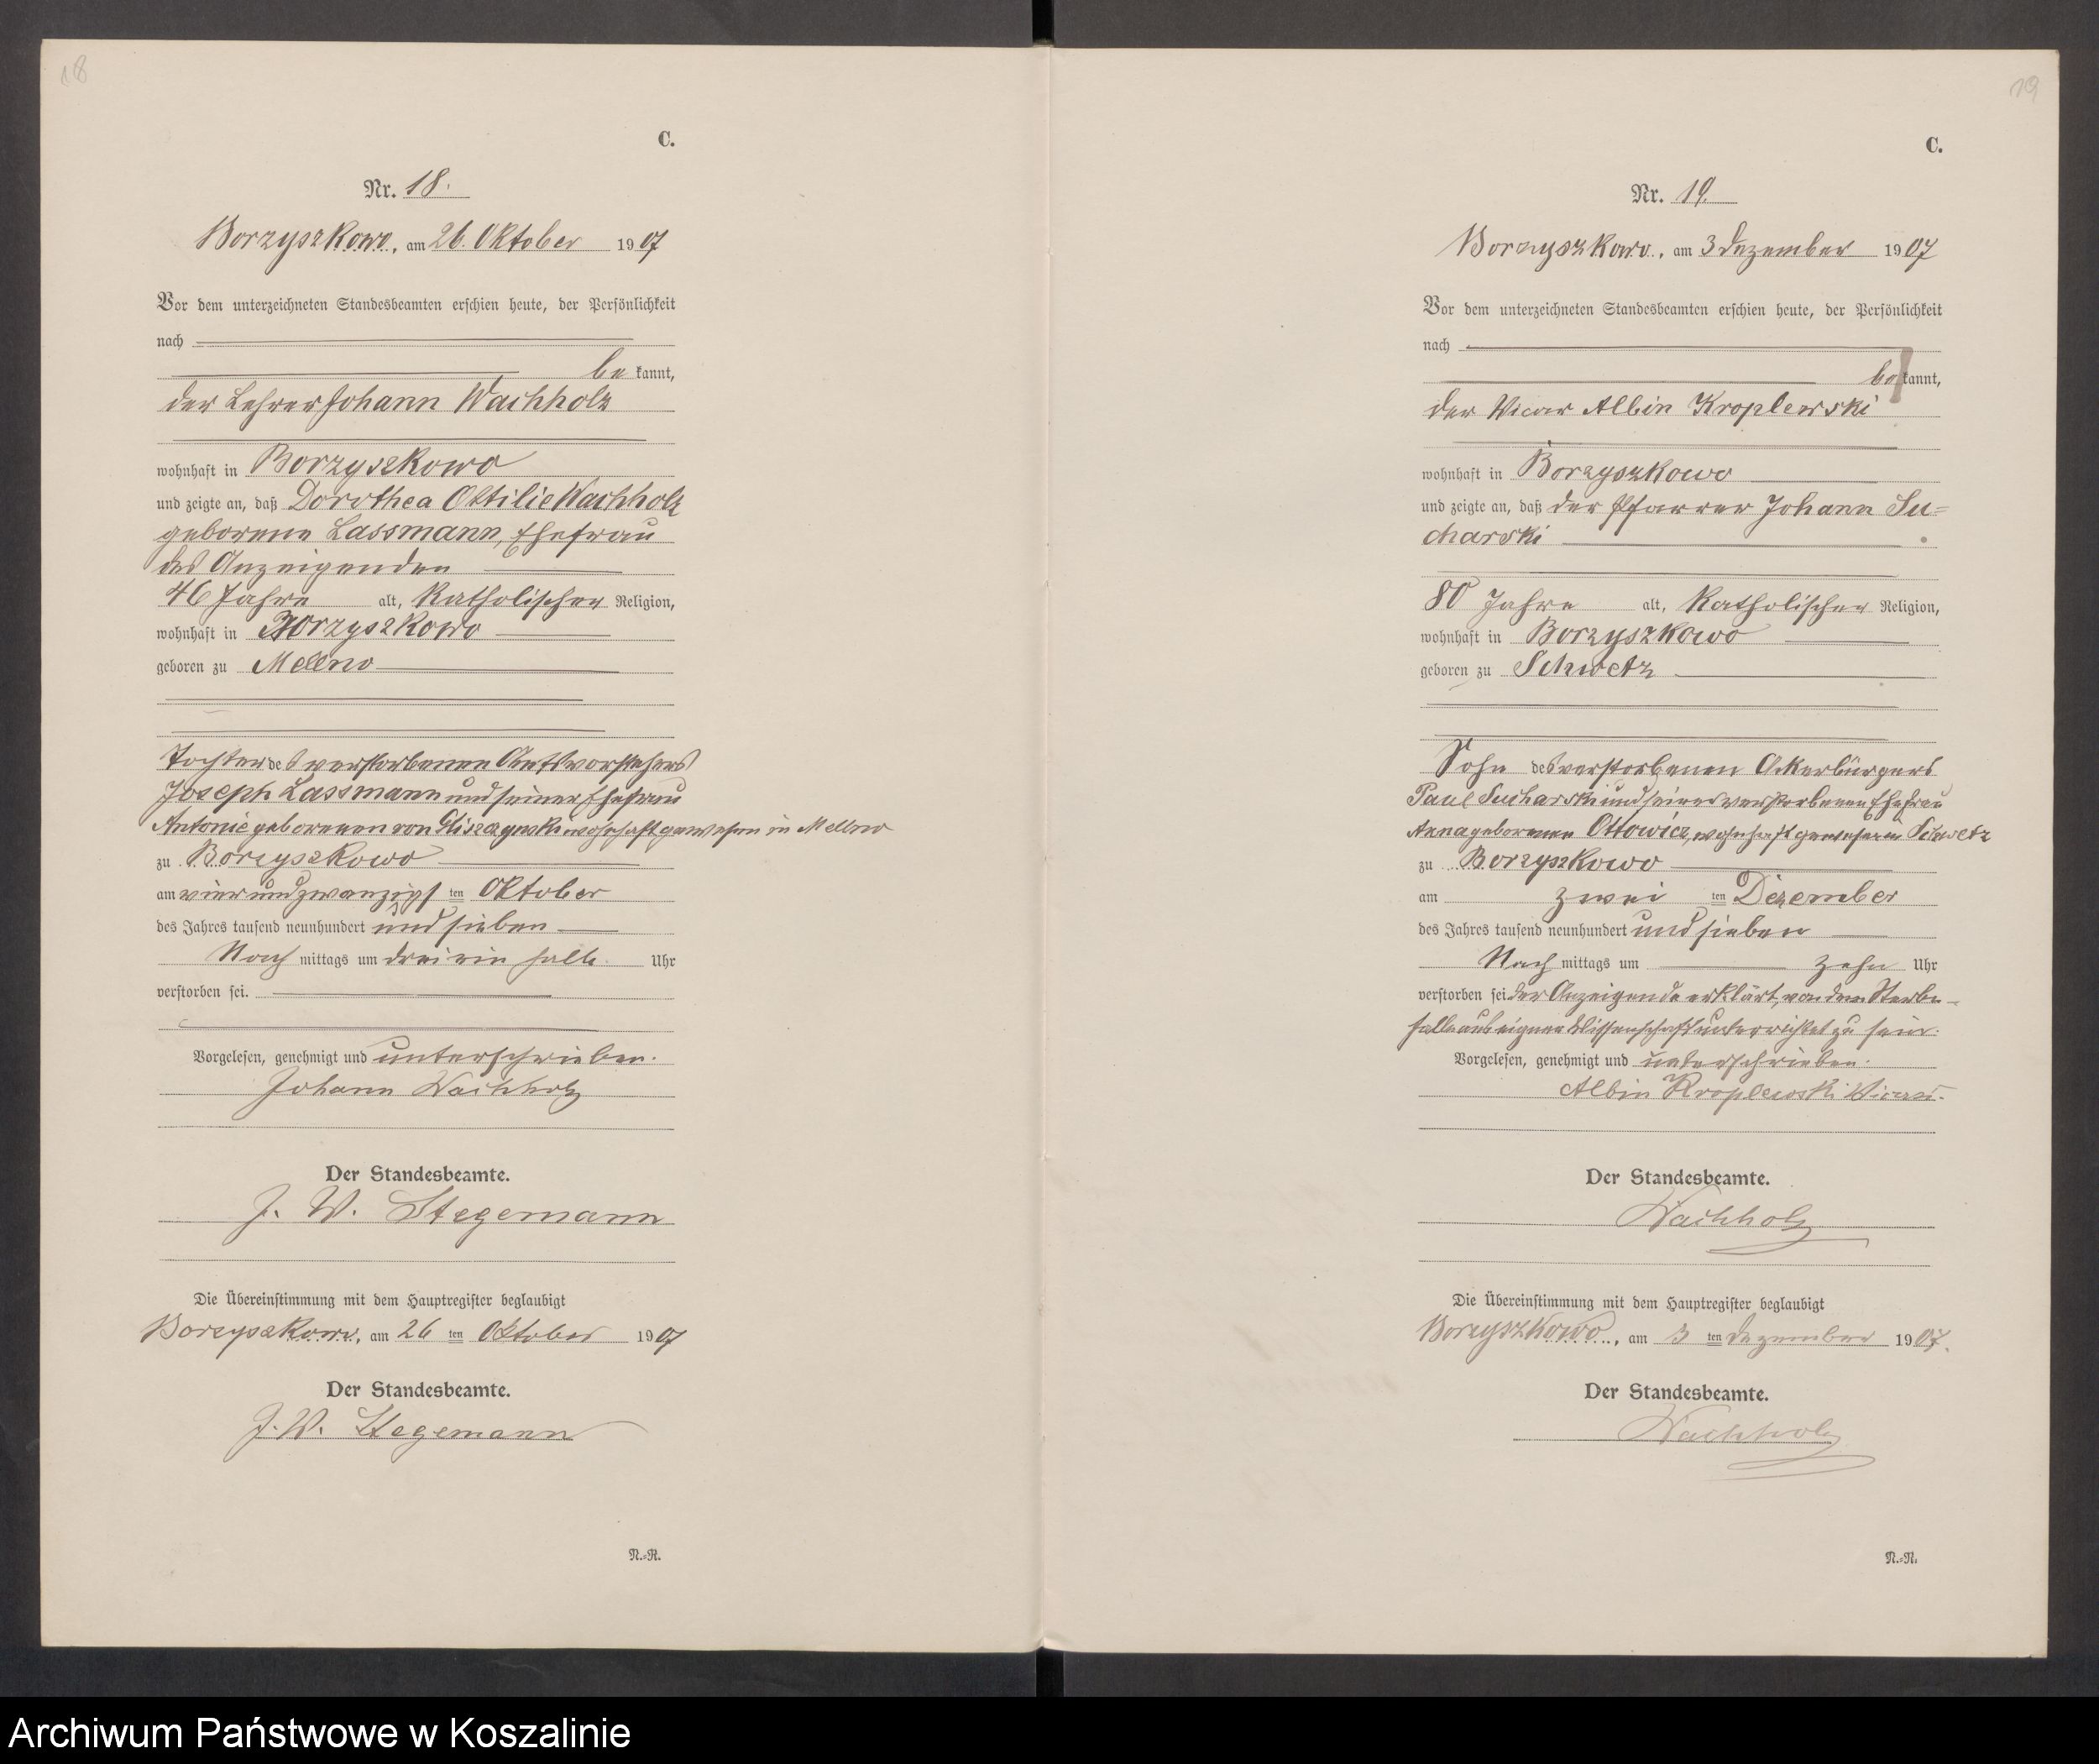 18
C.
Nr. 18.
Borzyszkowo, am 26. Oktober 1907
Vor dem unterzeichneten Standesbeamten erschien heute, der Persönlichkeit
nach
be kannt,
der Lehrer Johann Wachholz
wohnhaft in Borzyszkowo
und zeigte an, daß Dorothea Ottilie Wachholz
geborene Lassmann, Ehefrau
des Anzeigenden
46 Jahre alt, katholischer Religion,
wohnhaft in Borzyszkowo
geboren zu Mellno
Tochter des verstorbenen Amtsvorstehers
Joseph Lassmann und seiner Ehefrau
Antonie geborenen von wohnhaft gewesen in Mellno
zu Borzyszkowo
am vierundzwanzigsten Oktober
des Jahres tausend neunhundert und sieben
Nach mittags um drei ein halb Uhr
verstorben sei.
Vorgelesen, genehmigt und unterschrieben.
Johann Wachholz
Der Standesbeamte.
J. V. Stegemann
Die Übereinstimmung mit dem Hauptregister beglaubigt
Borzyszkowo, am 26 ten Oktober 1907
Der Standesbeamte.
J. V. Stegemann
N.-R.
19
C.
Nr. 19.
Borzyszkowo, am 3 Dezember 1907
Vor dem unterzeichneten Standesbeamten erschien heute, der Persönlichkeit
nach
be kannt,
der Vicar Albin Kroplewski
wohnhaft in Borzyszkowo
und zeigte an, daß der Pfarrer Johann Su=
charski
80 Jahre alt, katholischer Religion,
wohnhaft in Borzyszkowo
geboren zu Schwetz
Sohn des verstorbenen Ackerbürgers
Paul Sucharski und seiner verstorbenen Ehefrau
Anna geborenen Ottowicz, wohnhaft gewesen in Schwetz
zu Borzyszkowo
am zwei ten Dezember
des Jahres tausend neunhundert und sieben
Nach mittags um zehn Uhr
verstorben sei. Der Anzeigende erklärt, von dem Sterbe-
falle aus eigener Wissenschaft unterrichtet zu sein.
Vorgelesen, genehmigt und unterschrieben.
Albin Kroplewski Vicar.
Der Standesbeamte.
Wachholz
Die Übereinstimmung mit dem Hauptregister beglaubigt
Borzyszkowo, am 3 ten Dezember 1907.
Der Standesbeamte.
Wachholz
N.-R.
Archiwum Państwowe w Koszalinie